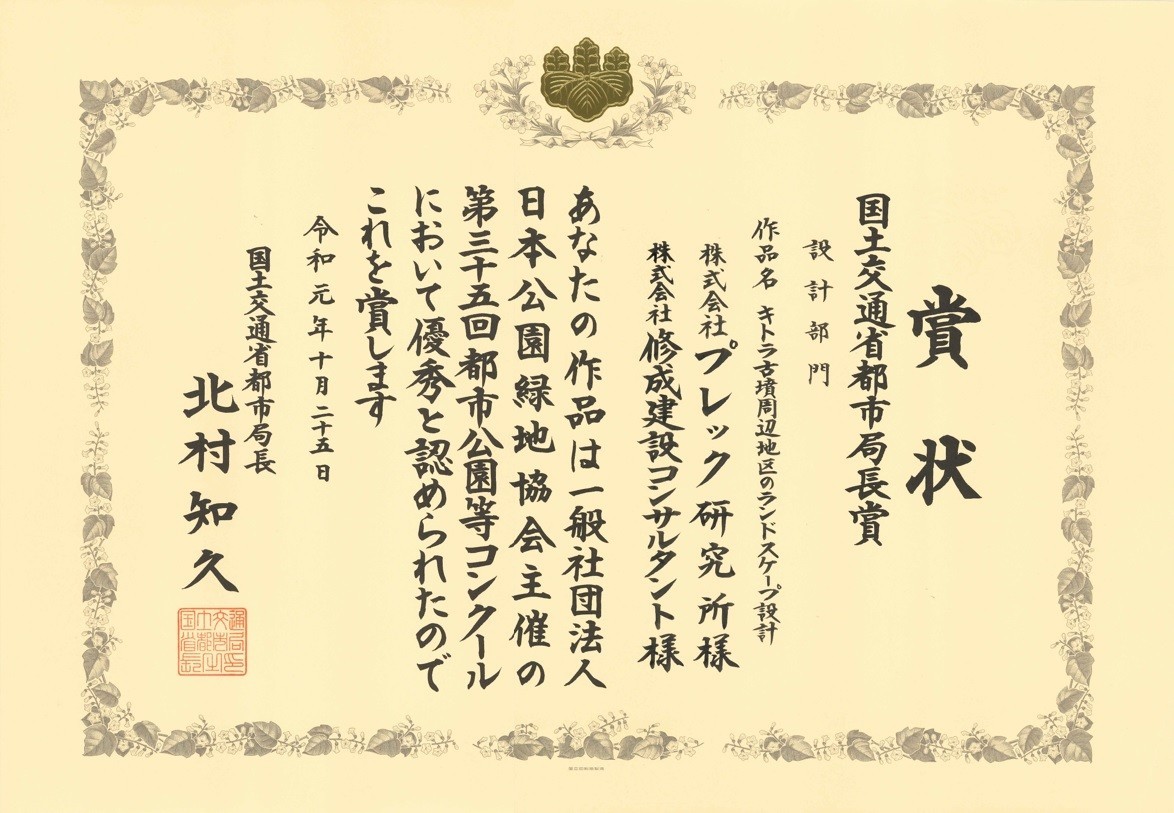 賞状
国土交通省都市局長賞
設計部門
作品名 キトラ古墳周辺地区のランドスケープ設計
株式会社プレック研究所様
株式会社修成建設コンサルタント様
あなたの作品は一般社団法人
日本公園緑地協会主催の
第三十五回都市公園等コンクール
において優秀と認められたので
これを賞します
令和元年十月二十五日
国土交通省都市局長
北村知久